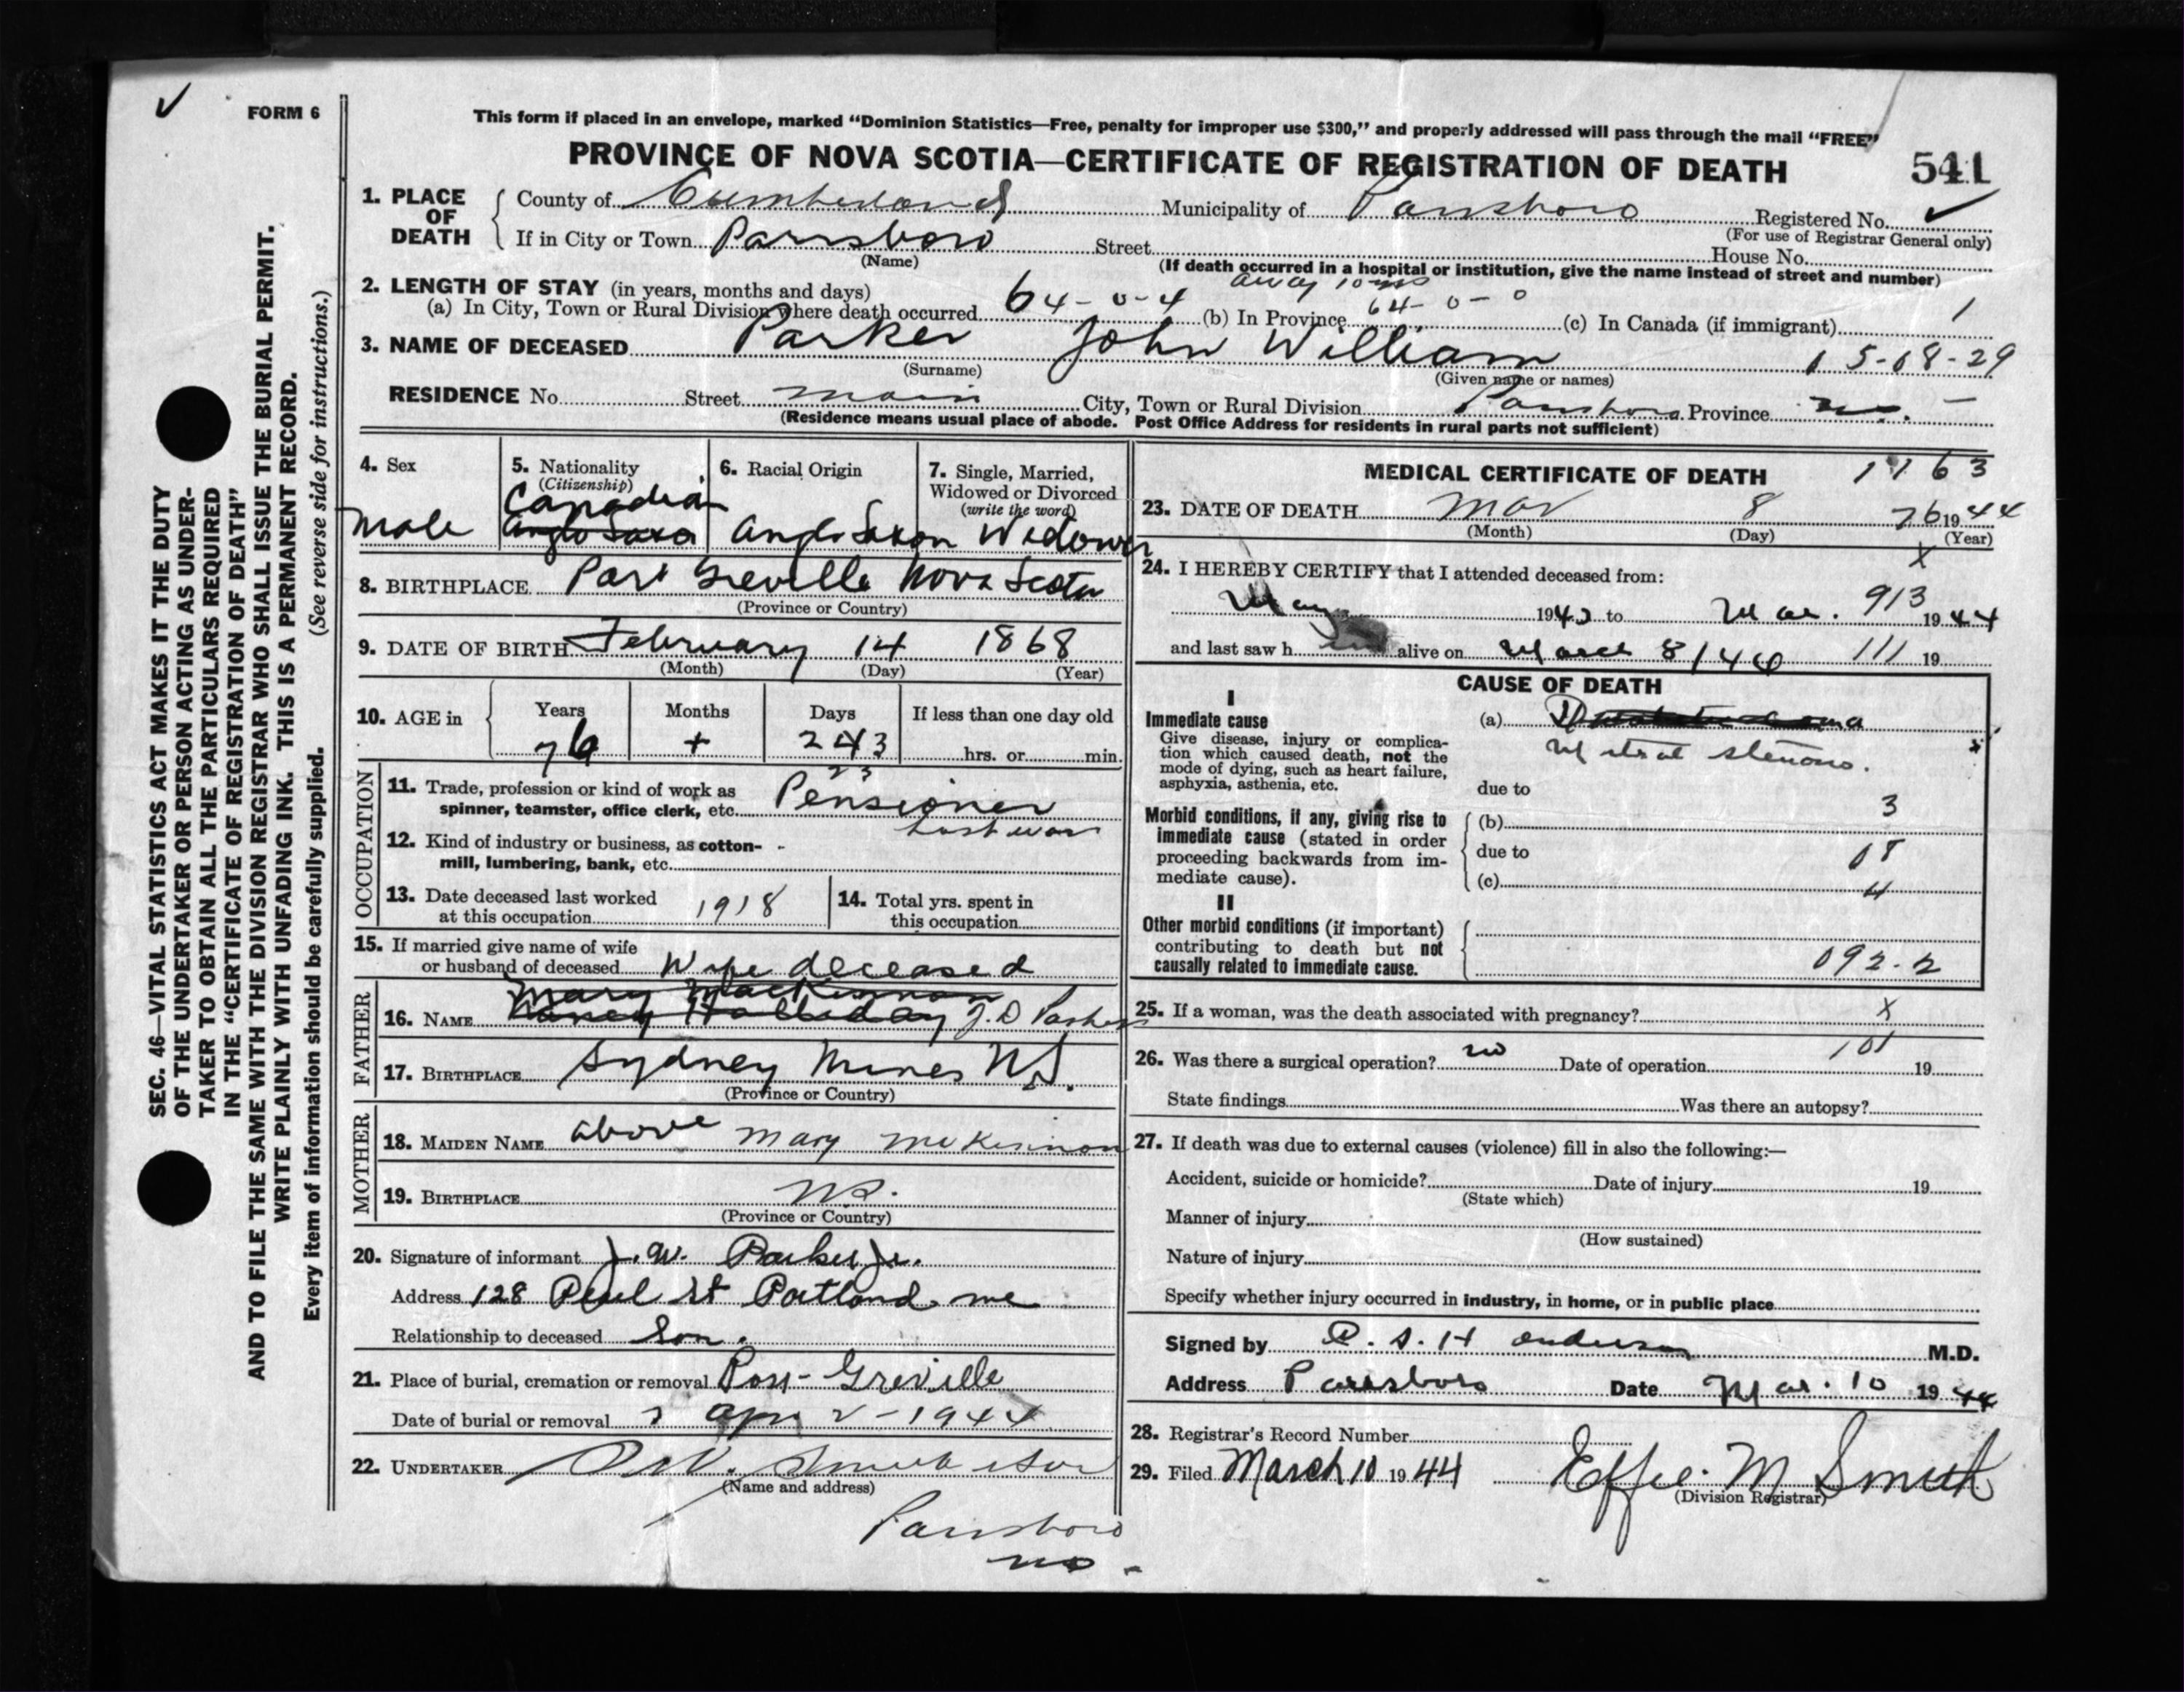 ✓
FORM 6
This form if placed in an envelope, marked “Dominion Statistics—Free, penalty for improper use $300,” and properly addressed will pass through the mail “FREE”
PROVINCE OF NOVA SCOTIA—CERTIFICATE OF REGISTRATION OF DEATH
541
1. PLACE OF DEATH
County of Cumberland Municipality of Parrsboro Registered No. ✓
(For use of Registrar General only)
If in City or Town Parrsboro Street House No.
(Name)
(If death occurred in a hospital or institution, give the name instead of street and number)
2. LENGTH OF STAY (in years, months and days)
away 10
(a) In City, Town or Rural Division where death occurred 64-0-4 (b) In Province 64-0-0 (c) In Canada (if immigrant) 1
3. NAME OF DECEASED Parker John William
(Surname) (Given name or names)
15-08-29
RESIDENCE No. Street Main City, Town or Rural Division Parrsboro Province N.S.
(Residence means usual place of abode. Post Office Address for residents in rural parts not sufficient)
4. Sex
Male
5. Nationality
(Citizenship)
Canadian
Anglo Saxon
6. Racial Origin
Anglo Saxon
7. Single, Married,
Widowed or Divorced
(write the word)
Widower
8. BIRTHPLACE Port Greville Nova Scotia
(Province or Country)
9. DATE OF BIRTH February 14 1868
(Month) (Day) (Year)
10. AGE in
Years Months Days If less than one day old
76 + 243 hrs. or min.
23
OCCUPATION
11. Trade, profession or kind of work as
spinner, teamster, office clerk, etc. Pensioner
Last war
12. Kind of industry or business, as cotton-
mill, lumbering, bank, etc.
13. Date deceased last worked
at this occupation 1918
14. Total yrs. spent in
this occupation
15. If married give name of wife
or husband of deceased Wife deceased
FATHER
Mary MacKinnon
16. NAME Nancy Halliday J. D Parker
17. BIRTHPLACE Sydney Mines N.S.
(Province or Country)
MOTHER
18. MAIDEN NAME above Mary McKinnon
19. BIRTHPLACE
(Province or Country)
20. Signature of informant J. W. Parker Jr.
Address 128 Pearl St Portland me
Relationship to deceased Son.
21. Place of burial, cremation or removal Port-Greville
Date of burial or removal Apr 2-1944
22. UNDERTAKER
(Name and address)
Parrsboro
NS
MEDICAL CERTIFICATE OF DEATH
1163
23. DATE OF DEATH Mar 8 76 1944
(Month) (Day) (Year)
X
24. I HEREBY CERTIFY that I attended deceased from:
May 1943 to Mar. 913 1944
and last saw h im alive on March 8/44 111 19
CAUSE OF DEATH
I
Immediate cause
Give disease, injury or complica-
tion which caused death, not the
mode of dying, such as heart failure,
asphyxia, asthenia, etc.
(a)
Mitral stenosis.
due to
Morbid conditions, if any, giving rise to
immediate cause (stated in order
proceeding backwards from im-
mediate cause).
3
(b)
due to 08
(c) 4
II
Other morbid conditions (if important)
contributing to death but not
causally related to immediate cause.
092-2
25. If a woman, was the death associated with pregnancy? X
26. Was there a surgical operation? no Date of operation 101 19
State findings Was there an autopsy?
27. If death was due to external causes (violence) fill in also the following:—
Accident, suicide or homicide? Date of injury 19
(State which)
Manner of injury
(How sustained)
Nature of injury
Specify whether injury occurred in industry, in home, or in public place
Signed by Anderson M.D.
Address Parrsboro Date Mar. 10 1944
28. Registrar's Record Number
29. Filed March 10 1944 Effie M Smith
(Division Registrar)
SEC. 46—VITAL STATISTICS ACT MAKES IT THE DUTY
OF THE UNDERTAKER OR PERSON ACTING AS UNDER-
TAKER TO OBTAIN ALL THE PARTICULARS REQUIRED
IN THE “CERTIFICATE OF REGISTRATION OF DEATH”
AND TO FILE THE SAME WITH THE DIVISION REGISTRAR WHO SHALL ISSUE THE BURIAL PERMIT.
WRITE PLAINLY WITH UNFADING INK. THIS IS A PERMANENT RECORD.
Every item of information should be carefully supplied. (See reverse side for instructions.)